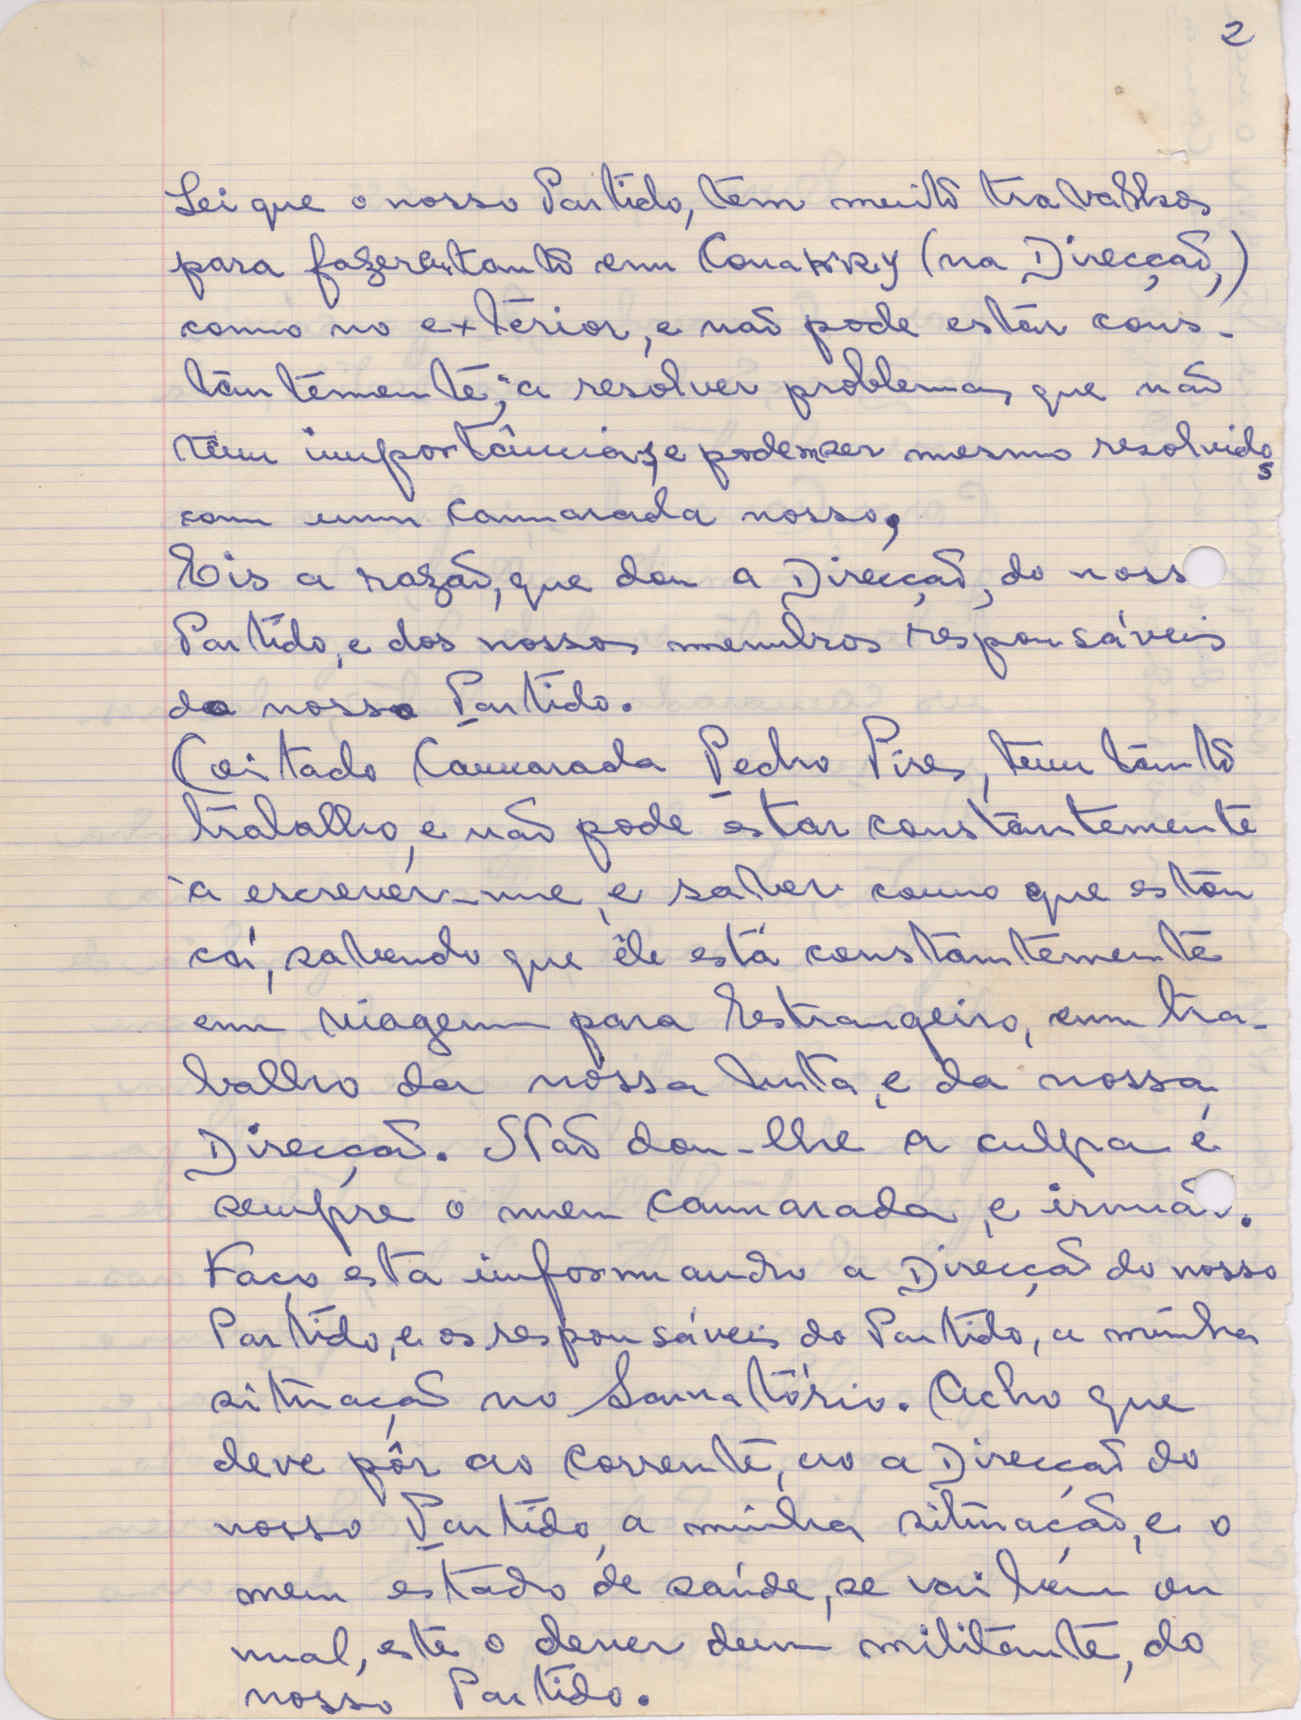 2
Sei que o nosso Partido, tem muitô trabalhos
para fazer tantô em Conakry (na Direcção,)
como no extérior, e não pode estár cons-
tântémenté, à resolver problemas que não
têm importância, e podem ser mesmo resolvidos
com um camarada nosso,
Eis a razão, que dou a Direcção, do noss
Partido, e dos nossos membros responsáveis
do nosso Partido.
Coitado Camarada Pedro Pires, tem tântô
trabalho, e não pode estar constântemente
à escrevér-me, e saber como que estou
cá, sabendo que êle está constântémente
em viagem para Estrangeiro, em tra-
balho da nossa luta, e da nossa
Direcção. Não dou-lhe a culpa é
sempre o meu camarada, e irmão.
Faço esta informando a Direcção do nosso
Partido, e os responsáveis do Partido, a minha
situação no Sanatório. Acho que
deve pôr ao corrente, ao a Direcção do
nosso Partido, a minha situação, e o
meu estado de saúde, se vai bém ou
mal, este o dever dum militante, do
nosso Partido.